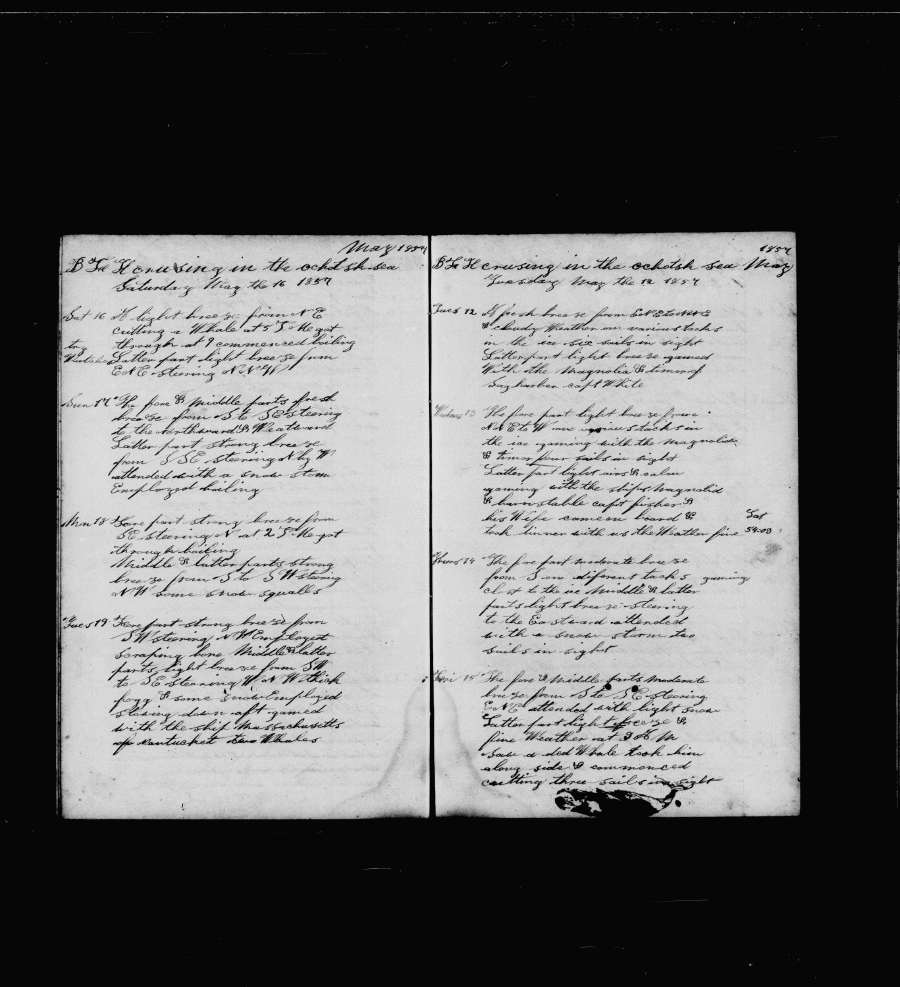 May 1857
cruising in the ochotsk sea
Saturday May the 16 1857
Sat 16 A light breeze from NE
cutting a Whale at 5 P M got
through at 9 commenced boiling
Latter part light breeze from
ENE steering N N W
Sun 17 The fore & Middle parts fresh
breeze from S to SE steering
to the northward & Westward
Latter part strong breeze
from S SE steering N by W
attended with a snow storm
Employed boiling
Mon 18 Fore part strong breeze from
SE steering N at 2 P M got
through boiling
Middle & latter parts strong
breeze from S to S W steering
N W some snow squalls
Tues 19 Fore part strong breeze from
S W steering N W Employed
scraping bone Middle & latter
parts light breeze from SW
to SE steering W N W thick
fogg & some snow Employed
stowing down aft gamed
with the ship Massachusetts
of Nantucket two Whales
1857
B crusing in the ochotsk sea May
Tuesday May the 12 1857
Tues 12 A fresh breeze from ENE to NNE
& cloudy Weather on various tacks
in the ice six sails in sight
Latter part light breeze gamed
With the Magnolia & timor of
Sagharbor capt White
13 The fore part light breeze from
NNE to W on various tacks in
the ice gaming with the magnolia
& timor four sails in sight
Latter part light airs & calm
gaming with the ships Magnolia
& barnstable capt fisher &
his Wife came on board & Lat
took dinner with us the Weather fine 54:03
Thurs 14 The fore part moderate breeze
from S on diferent tacks gaming
close to the ice Middle & latter
parts light breeze steering
to the Eastward attended
with a snow storm two
sails in sight
15 The fore & Middle parts moderate
breeze from S to SE steering
ENE attended with light snow
Latter part light breeze &
fine Weather at 3 A M
saw a ded Whale took him
along side & commenced
cutting three sails in sight